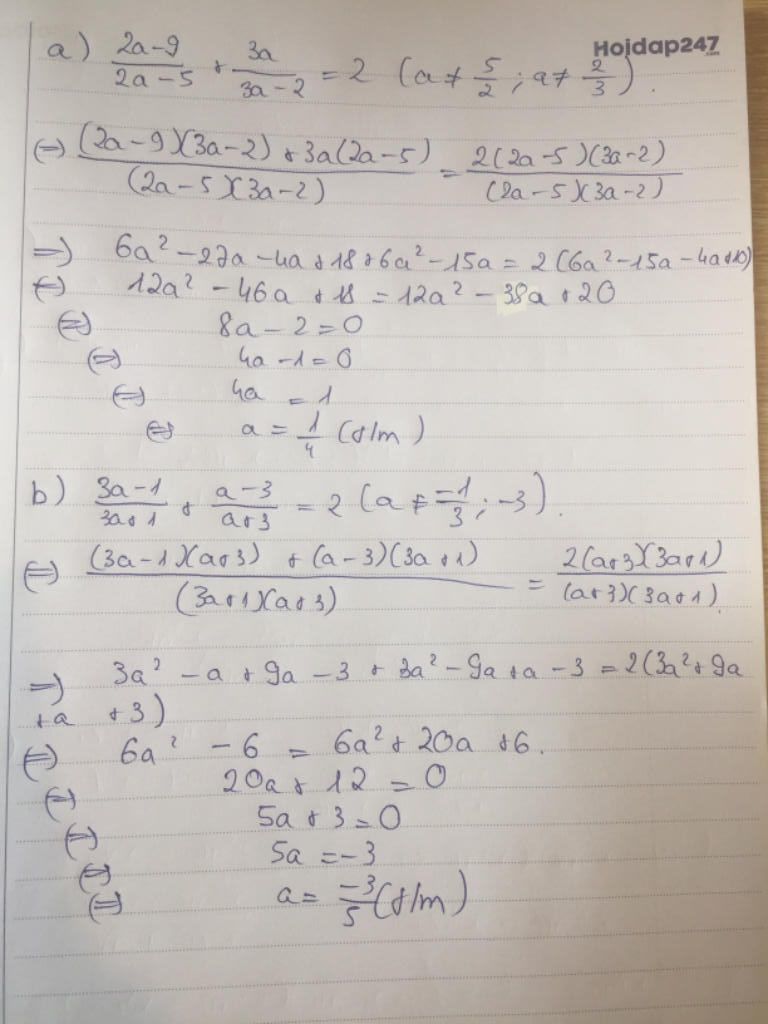 Hoidap247
.com
a) \frac{2a-9}{2a-5} + \frac{3a}{3a-2} = 2 (a ≠ \frac{5}{2}; a ≠ \frac{2}{3}).
(=) \frac{(2a-9)(3a-2) + 3a(2a-5)}{(2a-5)(3a-2)} = \frac{2(2a-5)(3a-2)}{(2a-5)(3a-2)}
=) 6a² - 27a - 4a + 18 + 6a² - 15a = 2(6a² - 15a - 4a + 10)
(=) 12a² - 46a + 18 = 12a² - 38a + 20
(=) 8a - 2 = 0
(=) 4a - 1 = 0
(=) 4a = 1
(=) a = \frac{1}{4} (t/m)
b) \frac{3a-1}{3a+1} + \frac{a-3}{a+3} = 2 (a ≠ \frac{-1}{3}; -3).
(=) \frac{(3a-1)(a+3) + (a-3)(3a+1)}{(3a+1)(a+3)} = \frac{2(a+3)(3a+1)}{(a+3)(3a+1)}
=) 3a² - a + 9a - 3 + 3a² - 9a + a - 3 = 2(3a² + 9a
+a +3)
(=) 6a² - 6 = 6a² + 20a + 6.
(=) 20a + 12 = 0
(=) 5a + 3 = 0
(=) 5a = -3
(=) a = \frac{-3}{5} (t/m)